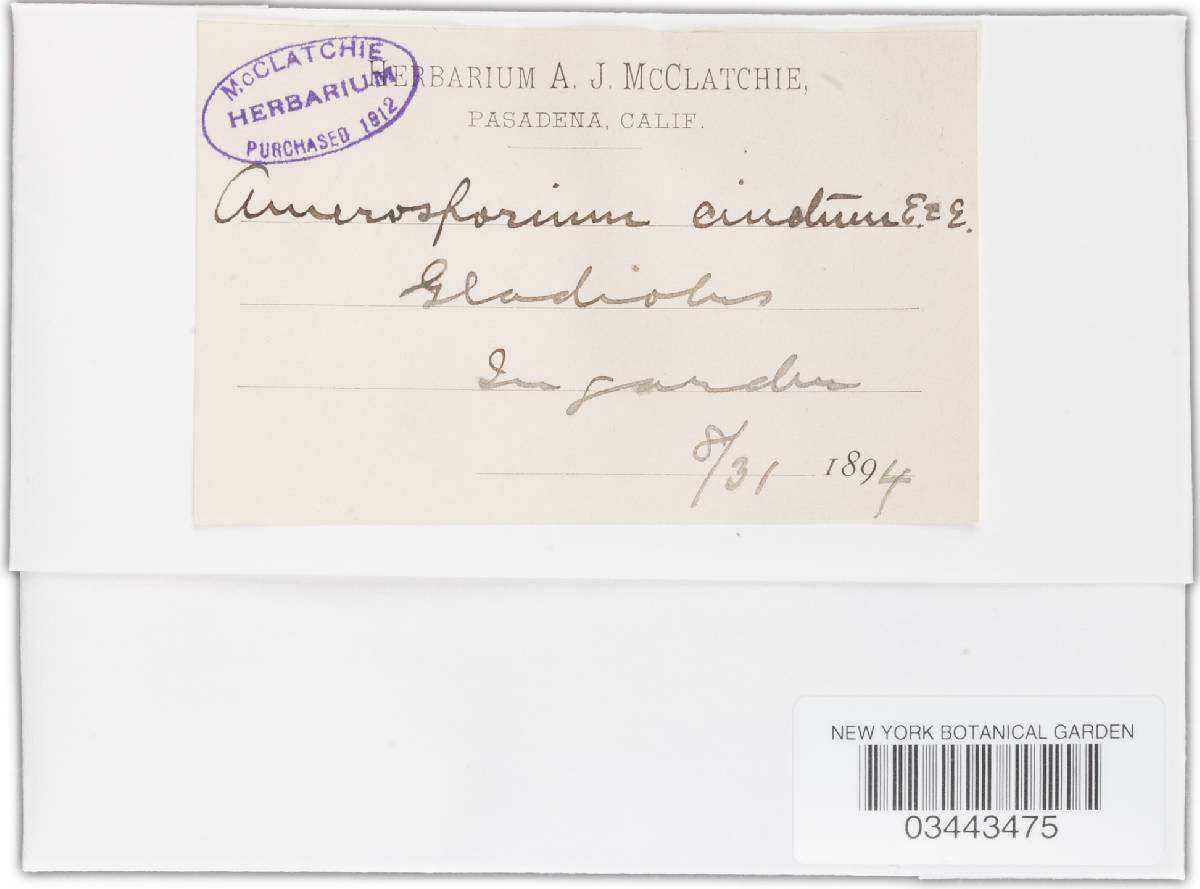 McCLATCHIE
HERBARIUM
PURCHASED 1912
HERBARIUM A. J. McCLATCHIE,
PASADENA, CALIF.
Amerosporium cinctum E. & E.
Gladiolus
In garden
8/31 1894
NEW YORK BOTANICAL GARDEN
03443475